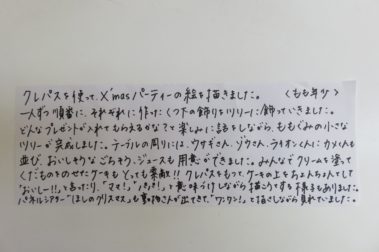 クレパスを使って、X'masパーティーの絵を描きました。 〈もも年少〉
一人ずつ順番に、それぞれに作ったくつ下の飾りをツリーに飾っていきました。
どんなプレゼントが入れてもらえるかな？と楽しみに話をしながら、ももぐみの小さな
ツリーが完成しました。テーブルの周りには、ウサギさん、ゾウさん、ライオンくんにカメくんも
並び、おいしそうなごちそう、ジュースも用意ができました。みんなでクリームを塗って
くだものをのせたケーキもとっても素敵!! クレパスをもって、ケーキの上をちょんちょんとして
「おいしー!!」と言ったり、「ママ!」「パパ!」と意味づけしながら描こうとする様子もありました。
パネルシアター「ほしのクリスマス」も